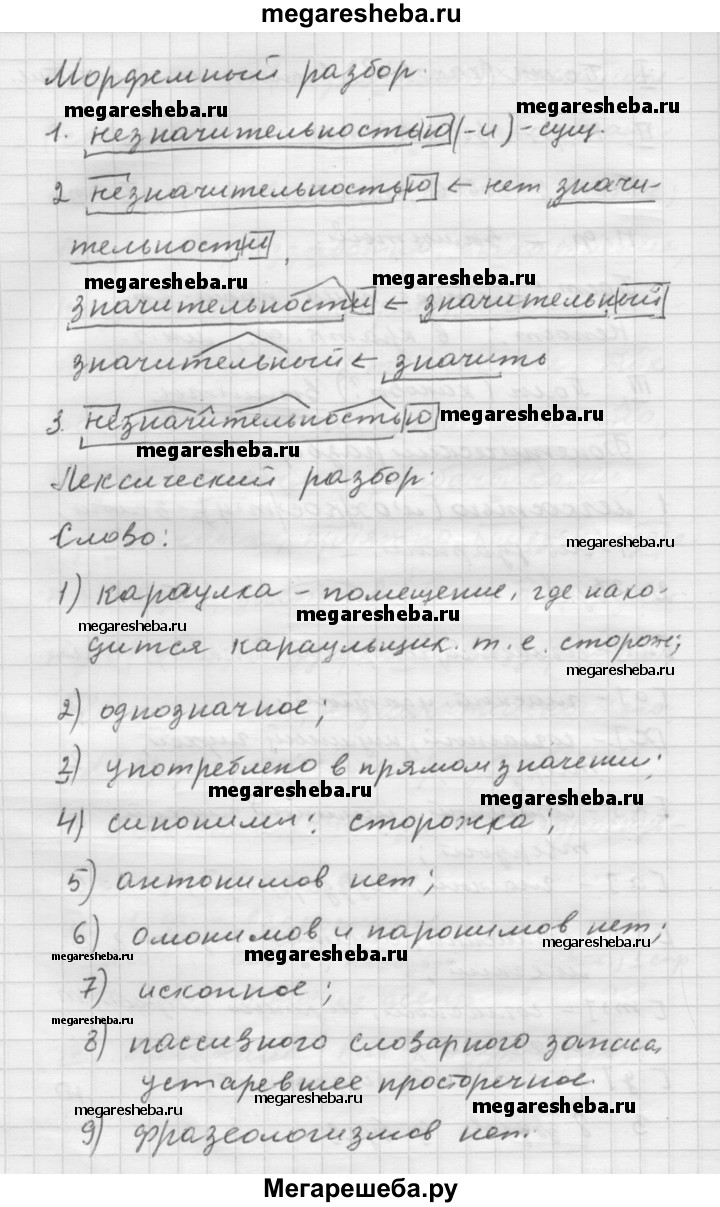 megaresheba.ru
Морфемный разбор.
megaresheba.ru megaresheba.ru
1. незначительностью (-и) - сущ.
2 незначительностью ← нет значи-
тельности,
megaresheba.ru megaresheba.ru
значительности ← значительный
значительный ← значить
3. незначительностью megaresheba.ru
megaresheba.ru
Лексический разбор.
Слово:
megaresheba.ru
1) караулка - помещение, где нахо-
megaresheba.ru megaresheba.ru
дится караульщик. т. е. сторож;
megaresheba.ru
2) однозначное;
3) употреблено в прямом значении;
megaresheba.ru megaresheba.ru
4) синонимы: сторожка;
5) антонимов нет;
6) омонимов и паронимов нет;
megaresheba.ru megaresheba.ru megaresheba.ru
7) исконное;
megaresheba.ru
8) пассивного словарного запаса,
устаревшее просторечное.
megaresheba.ru megaresheba.ru megaresheba.ru
9) фразеологизмов нет.
Мегарешеба.ру